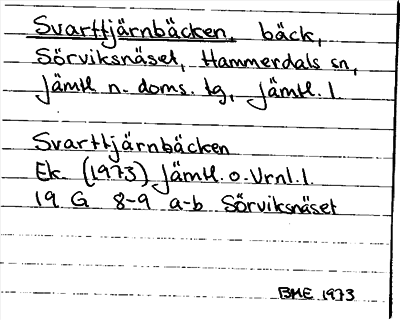 Svarttjärnbäcken, bäck,
Sörviksnäset, Hammerdals sn,
Jämtl n. doms. tg, Jämtl. l.
Svarttjärnbäcken
Ek. (1973) Jämtl. o. Vrnl. l.
19 G 8-9 a-b Sörviksnäset
BME 1973